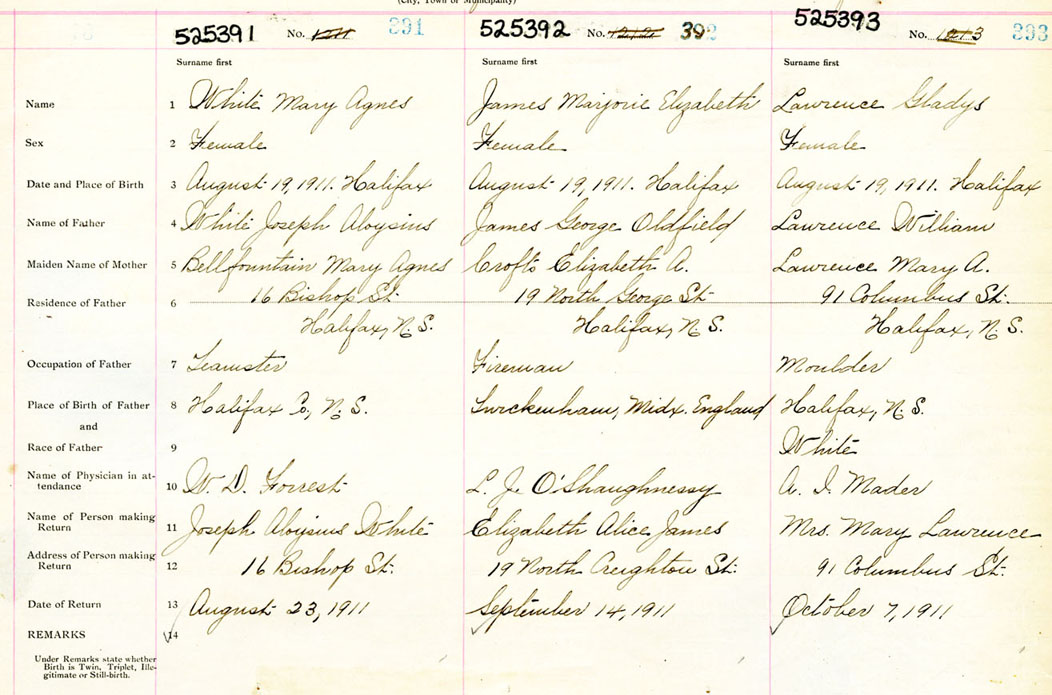 (City, Town or Municipality)
525391 No. 391 525392 No. 1212 392 525393 No. 1213 393
Surname first Surname first Surname first
Name 1 White Mary Agnes James Marjorie Elizabeth Lawrence Gladys
Sex 2 Female Female Female
Date and Place of Birth 3 August 19, 1911. Halifax August 19, 1911. Halifax August 19, 1911. Halifax
Name of Father 4 White Joseph Aloysius James George Oldfield Lawrence William
Maiden Name of Mother 5 Bellfountain Mary Agnes Crofts Elizabeth A. Lawrence Mary A.
Residence of Father 6 16 Bishop St. 19 North George St. 91 Columbus St.
Halifax, N. S. Halifax, N. S. Halifax, N. S.
Occupation of Father 7 Teamster Fireman Moulder
Place of Birth of Father 8 Halifax Co., N. S. Twickenham, Midx. England Halifax, N. S.
and
Race of Father 9 White
Name of Physician in at-
tendance 10 W. D. Forrest L. J. O'Shaughnessy A. I. Mader
Name of Person making
Return 11 Joseph Aloysius White Elizabeth Alice James Mrs. Mary Lawrence
Address of Person making
Return 12 16 Bishop St. 19 North Creighton St. 91 Columbus St.
Date of Return 13 August 23, 1911 September 14, 1911 October 7, 1911
REMARKS 14
Under Remarks state whether
Birth is Twin, Triplet, Ille-
gitimate or Still-birth.